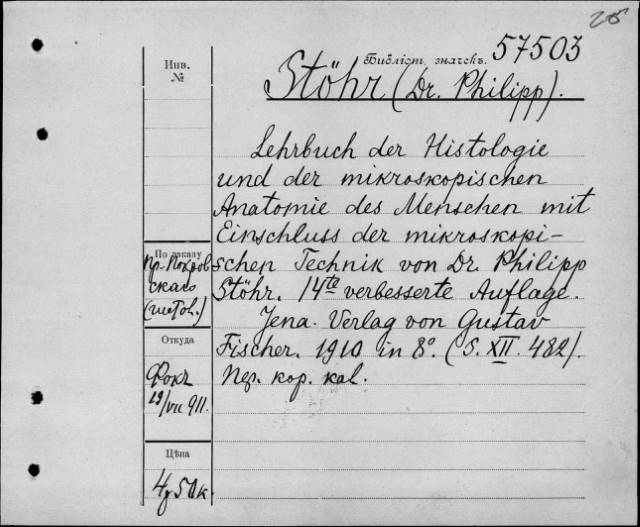 25
Библіот. значекъ. 57503
Инв.
№
Stöhr (Dr. Philipp).
Lehrbuch der Histologie
und der mikroskopischen
Anatomie des Menschen mit
Einschluss der mikroskopi-
schen Technik von Dr. Philipp
Stöhr. 14te verbesserte Auflage.
Jena. Verlag von Gustav
Fischer. 1910 in 8°. (S. XII. 482).
Пер. кор. кал.
По заказу
пр. Покров
скаго
Откуда
19/VII 911.
Цѣна